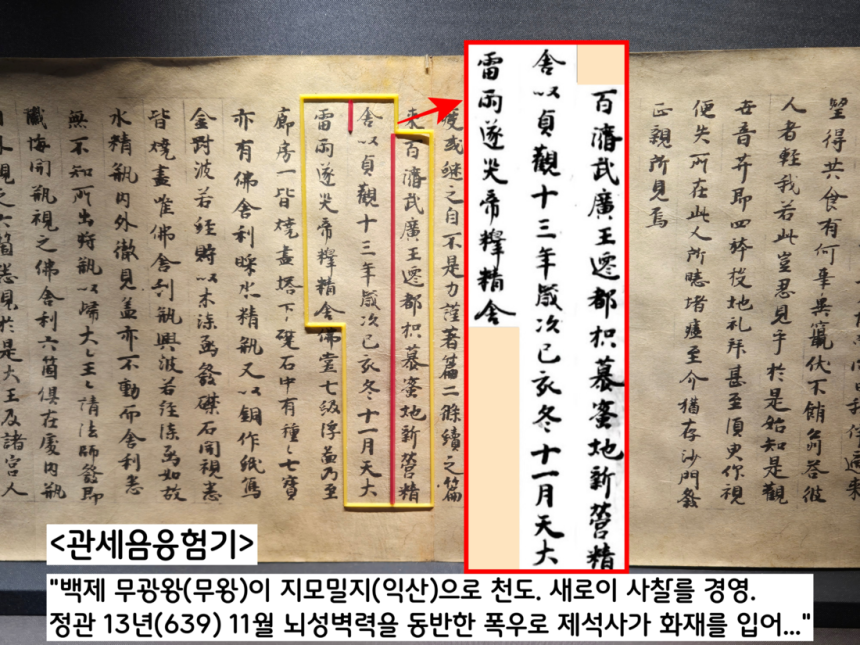 人者輕我若此豈忍見乎於是始知是觀
便失所在此人所堵瘂至介猶存沙門發
正親所見焉
百濟武廣王遷都枳慕蜜地新營精
舍以貞觀十三年歲次己亥冬十一月天大
雷雨遂災帝釋精舍
度或継之自不是力謹著篇二條續之篇
末百濟武廣王遷都枳慕蜜地新營精
舍以貞觀十三年歲次己亥冬十一月天大
雷雨遂災帝釋精舍佛堂七級浮啚乃至
廊房一皆燒盡塔下礎石中有種〻七寶
亦有佛舍利睬水精瓶又以銅作紙寫
金對波若経貯以木漆函發礎石開視悉
皆燒盡唯佛舍利瓶與波若経漆函如故
水精瓶内外徹見盖亦不動而舍利悉
無不知所出将瓶以歸大〻王〻請法師發即
懺悔開瓶視之佛舍利六箇俱在處内瓶
自外視之六箇悉見於是大王及諸宮人
<관세음응험기>
"백제 무광왕(무왕)이 지모밀지(익산)으로 천도. 새로이 사찰를 경영.
정관 13년(639) 11월 뇌성벽력을 동반한 폭우로 제석사가 화재를 입어..."